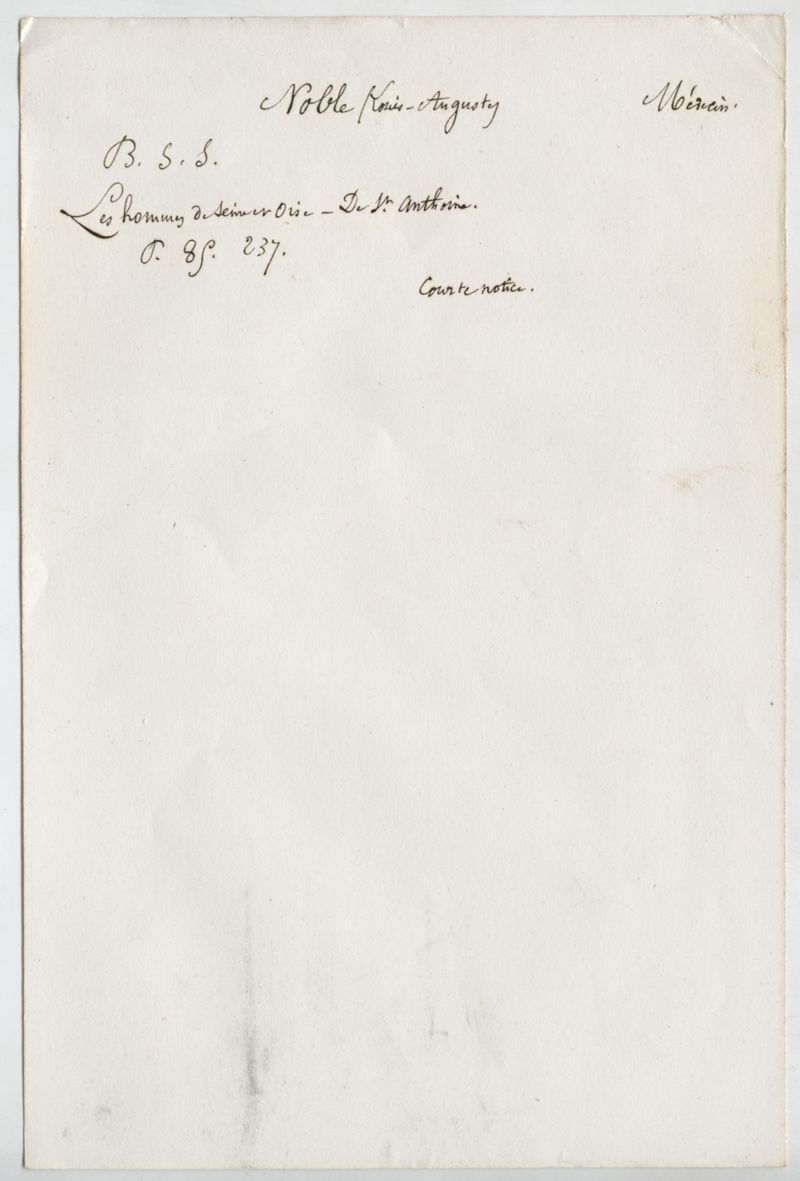 Noble (Louis-Auguste) Médecin.
B. S. S.
Les hommes de Seine et Oise — De St Anthoine.
P. 85. 237.
Courte notice.